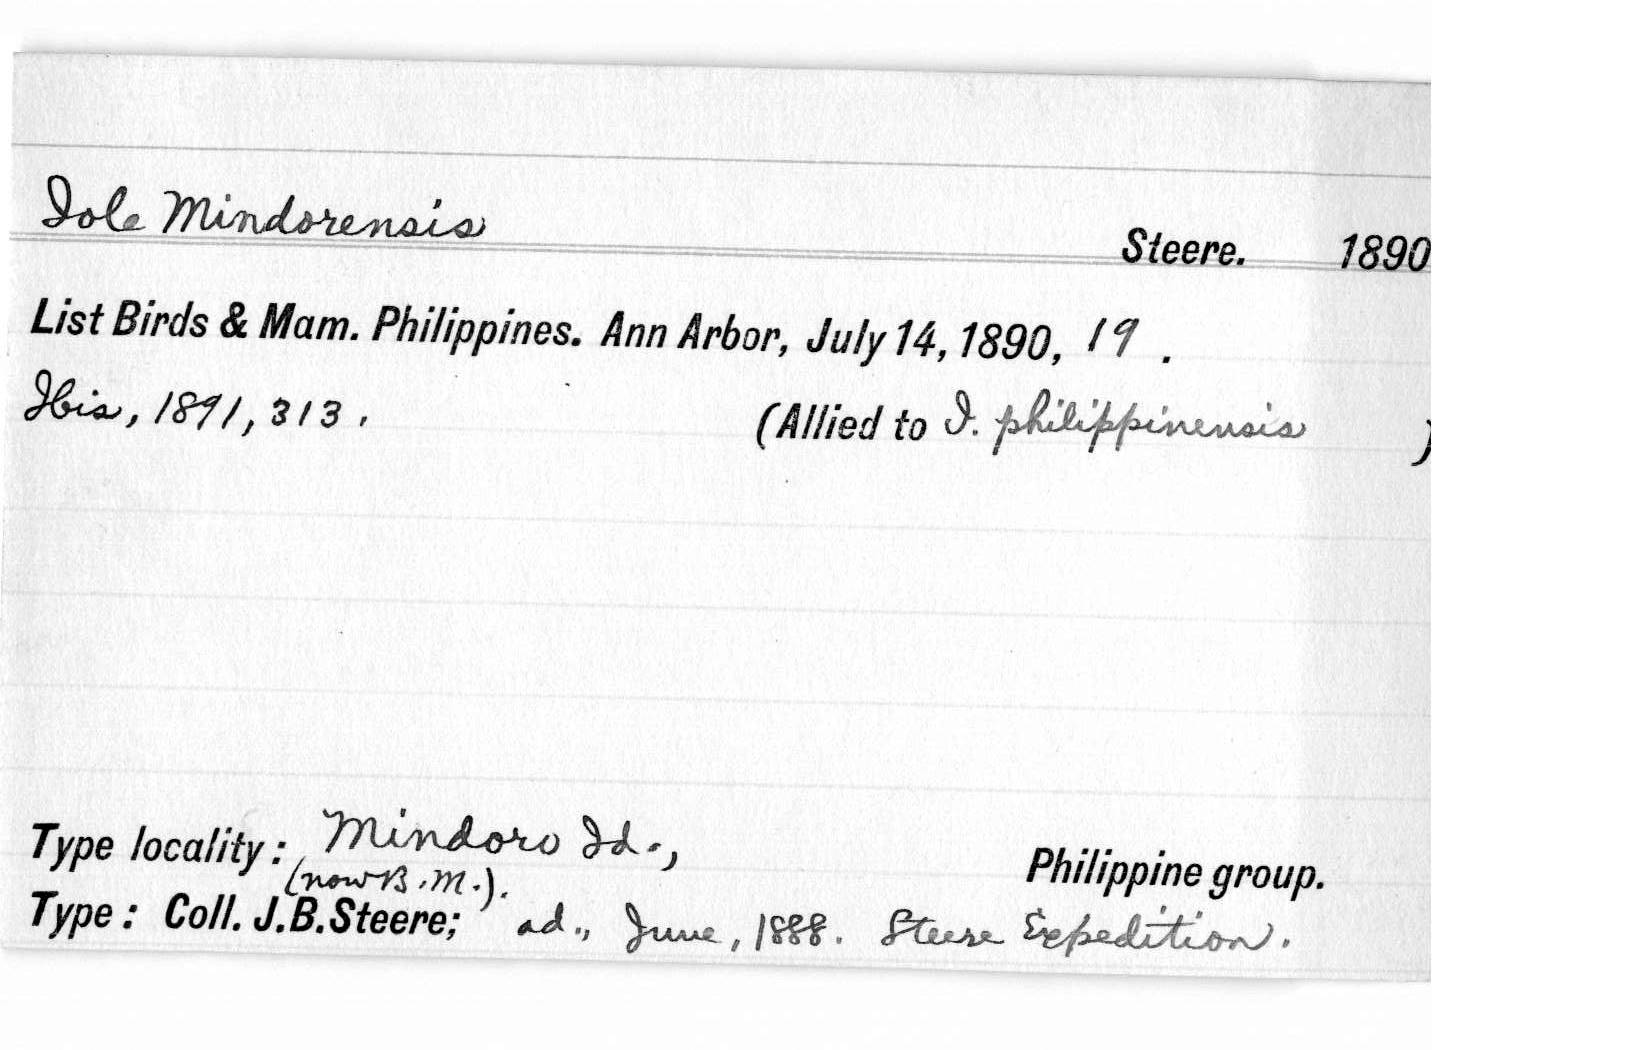 Iole Mindorensis Steere. 1890
List Birds & Mam. Philippines. Ann Arbor, July 14, 1890, 19.
Ibis, 1891, 313. (Allied to I. philippinensis )
Type locality: Mindoro Id., Philippine group.
(now B.M.).
Type: Coll. J.B.Steere; ad., June, 1888. Steere Expedition.